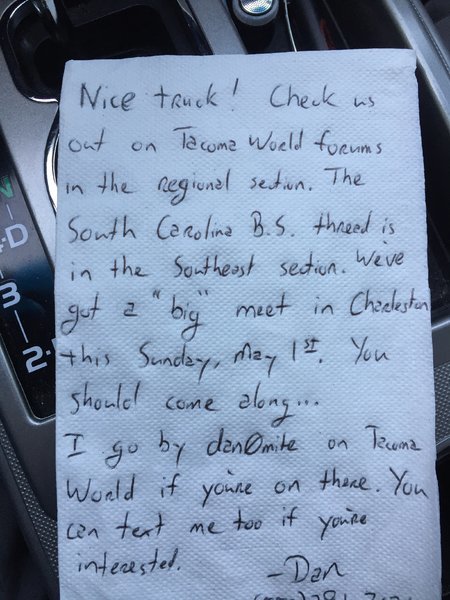 Nice truck! Check us
out on Tacoma World forums
in the regional section. The
South Carolina B.S. thread is
in the Southeast section. We've
got a "big" meet in Charleston
this Sunday, May 1st. You
should come along...
I go by dan0mite on Tacoma
World if you're on there. You
can text me too if you're
interested.
-Dan
N
D
3
2